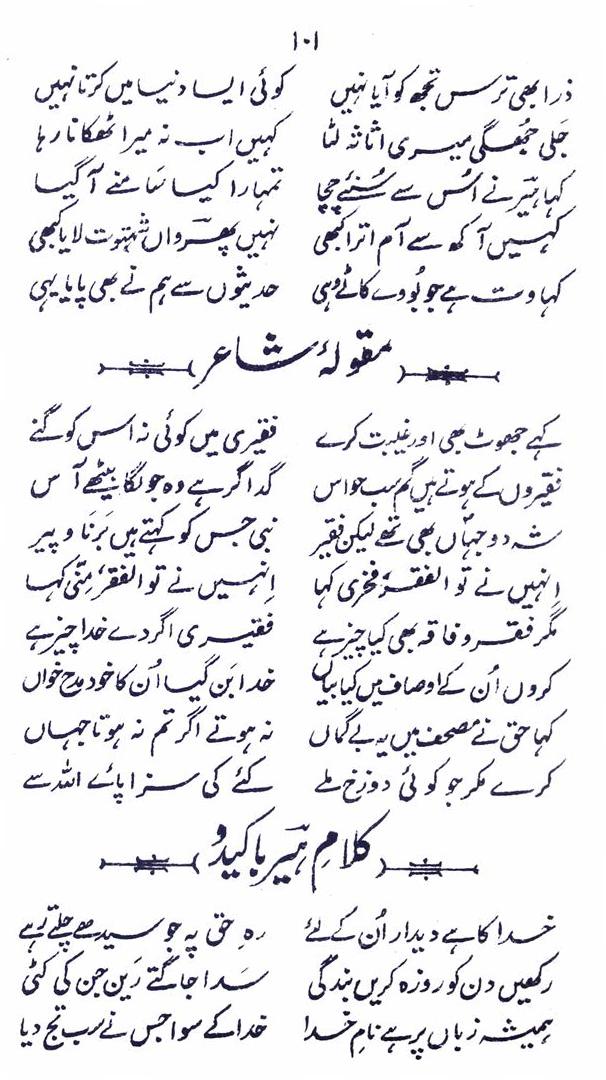 ۱۰۱
ذرا بھی ترس تجھ کو آیا نہیں کوئی ایسا دنیا میں کرتا نہیں
جلی جھگی میری اثاثہ لٹا کہیں اب نہ میرا ٹھکانا رہا
کہا ہیر نے اُس سے سُنئے چچا تمہارا کیا سامنے آ گیا
کہیں آکھ سے آم اترا کبھی نہیں پھر واں شہتوت لایا کبھی
کہاوت ہے جو بُووے کاٹے وہی حدیثوں سے ہم نے بھی پایا یہی
مقولۂ شاعر
کہے جھوٹ بھی اور غیبت کرے فقیری میں کوئی نہ اس کو گنے
فقیروں کے ہوتے ہیں گم سب حواس گداگر ہے وہ جو لگا بیٹھے آس
شہ دوجہاں بھی تھے لیکن فقیر نبی جس کو کہتے ہیں بَرنَا و پیر
اِنہیں نے تو الفقرُ فخری کہا اِنہیں نے تو الفقرُ مِنّی کہا
مگر فقر و فاقہ بھی کیا چیز ہے فقیری اگر دے خدا چیز ہے
کروں اُن کے اوصاف میں کیا بیاں خدا بَن گیا اُن کا خود مدح خواں
کہا حق نے مصحف میں یہ بے گماں نہ ہوتے اگر تم نہ ہوتا جہاں
کرے مکر جو کوئی دوزخ ملے کئے کی سزا پائے اللہ سے
کلامِ ہیر با کیدو
خدا کا ہے دیدار اُن کے لئے رہِ حق پہ جو سیدھے چلتے رہے
رکھیں دن کو روزہ کریں بندگی سَدا جاگتے رَین جن کی کٹی
ہمیشہ زباں پر ہے نامِ خدا خدا کے سوا جس نے سب تج دیا